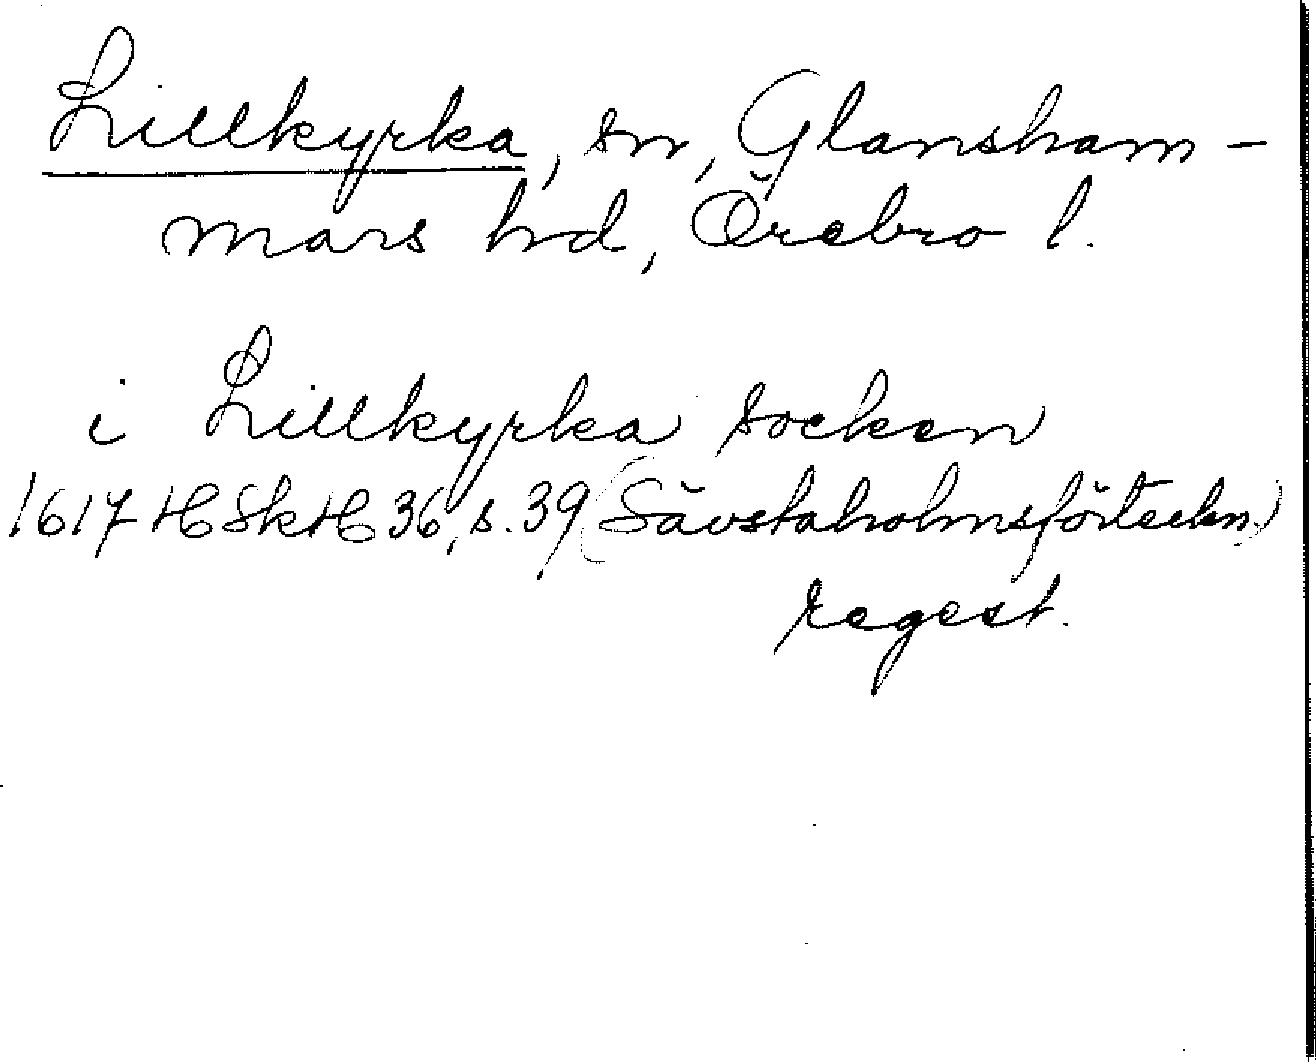 Lillkyrka, sn, Glansham-
mars hd, Örebro l.
i Lillkyrka socken
1617 HSkH 36, s. 39 (Sävstaholmsförteckn.)
regest.